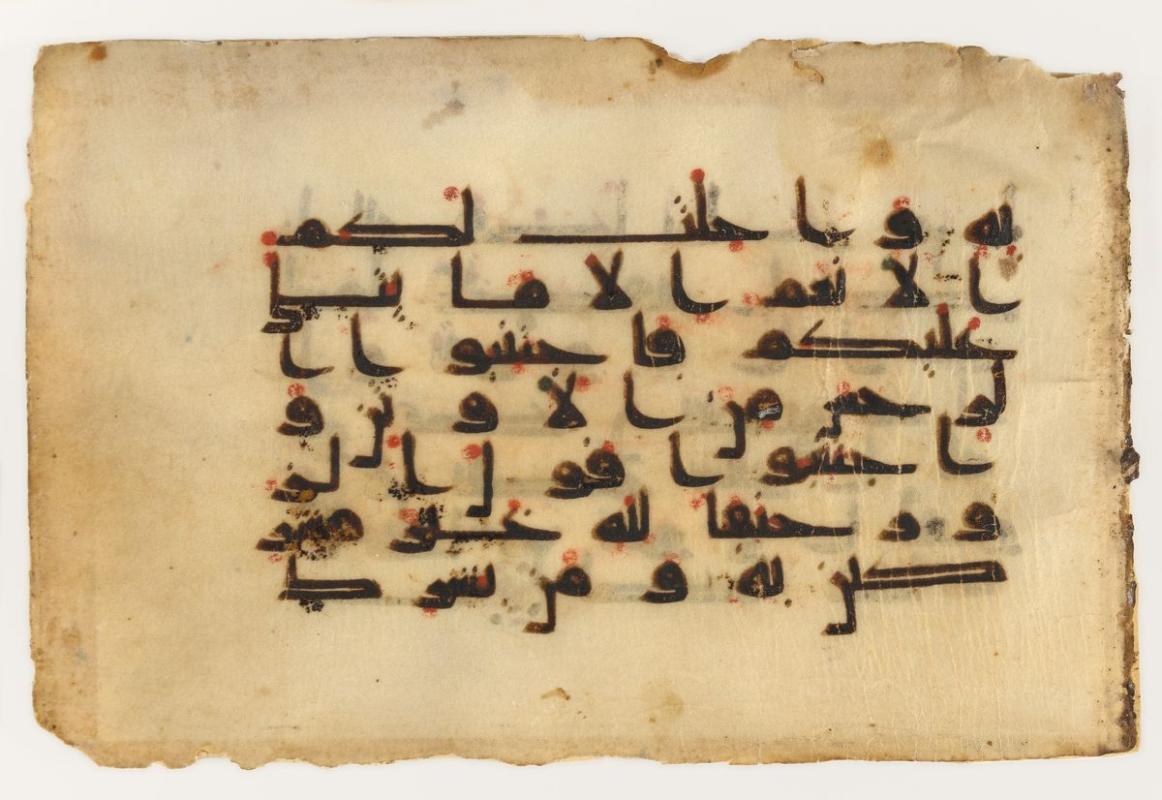 به واحلت لكم
الانعم الا ما يتلى
عليكم فاجتنبوا ا
لرجس من الاوثن و
اجتنبوا قول الز
ور حنفا لله غير مشر
كين به ومن يشرك